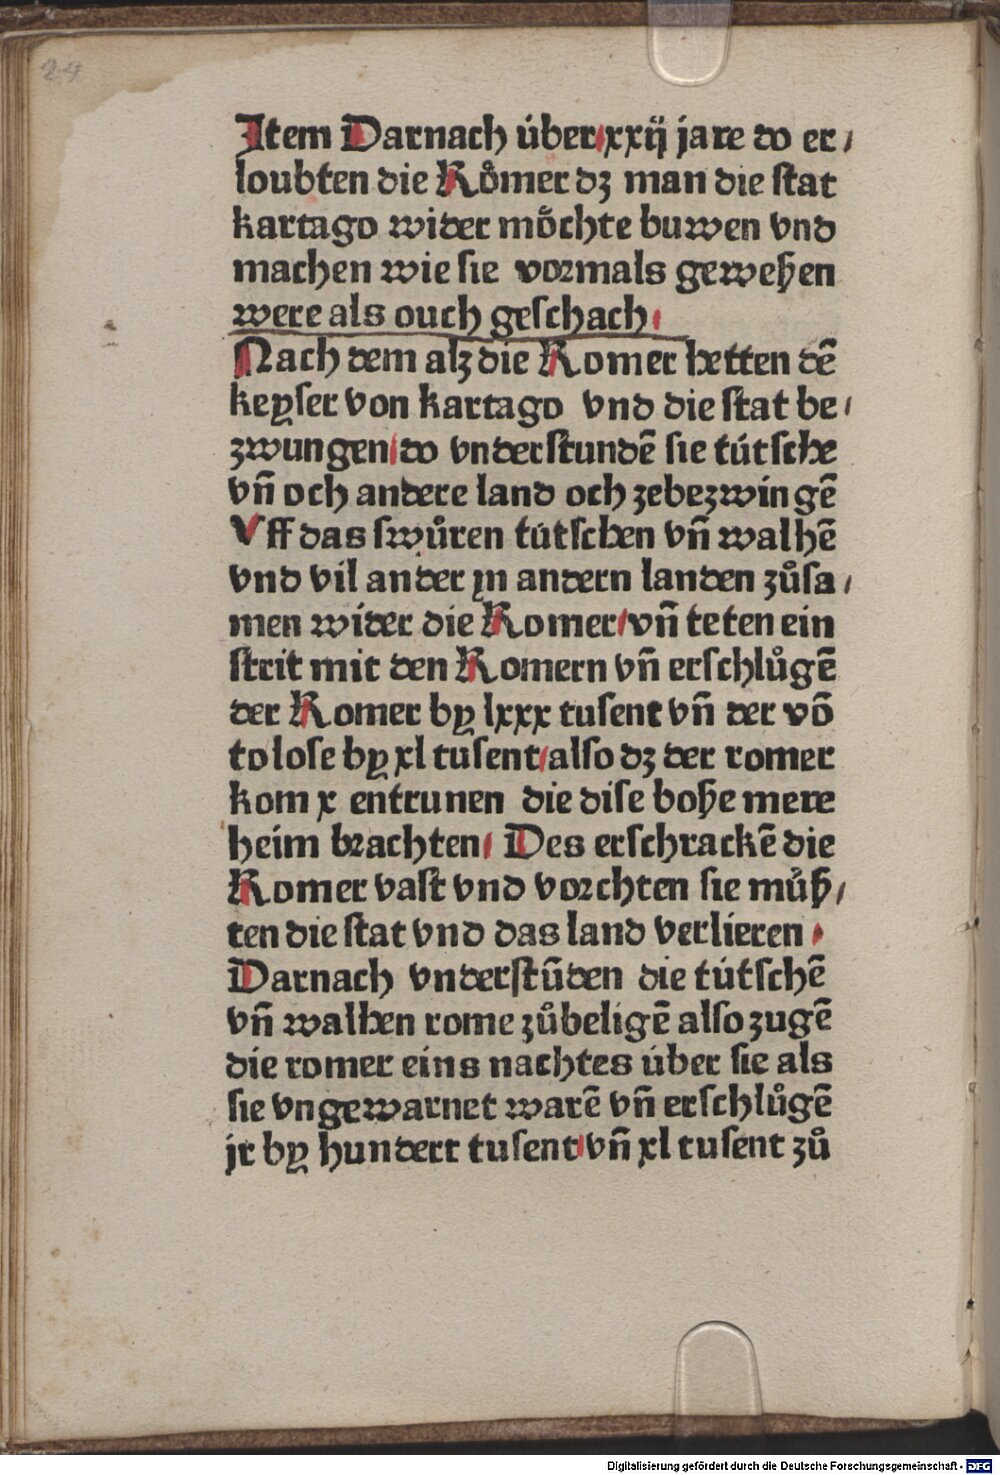 24
Jtem Darnach úber xxij jare do er/
loubten die Rőmer dʒ man die ſtat
kartago wider mőchte buwen vnd
machen wie ſie vormals geweßen
were als ouch geſchach/
Nach dem alʒ die Romer hetten dē
keyſer von kartago vnd die ſtat be/
zwungen/do vnderſtundē ſie tútſche
vn̄ och andere land och zebezwingē
Vff das ſwůren tútſchen vn̄ walhē
vnd vil ander jn andern landen zůſa/
men wider die Romer/vn̄ teten ein
ſtrit mit den Romern vn̄ erſchlůgē
der Romer by lxxx tuſent vn̄ der vō
toloſe by xl tuſent/alſo dʒ der romer
kom x entrunen die diſe boße mere
heim brachten/ Des erſchrackē die
Romer vaſt vnd vorchten ſie můß/
ten die ſtat vnd das land verlieren /
Darnach vnderſtūden die tútſchē
vn̄ walhen rome zůbeligē alſo zugē
die romer eins nachtes úber ſie als
ſie vngewarnet warē vn̄ erſchlůgē
jr by hundert tuſent/vn̄ xl tuſent zů
Digitalisierung gefördert durch die Deutsche Forschungsgemeinschaft - DFG